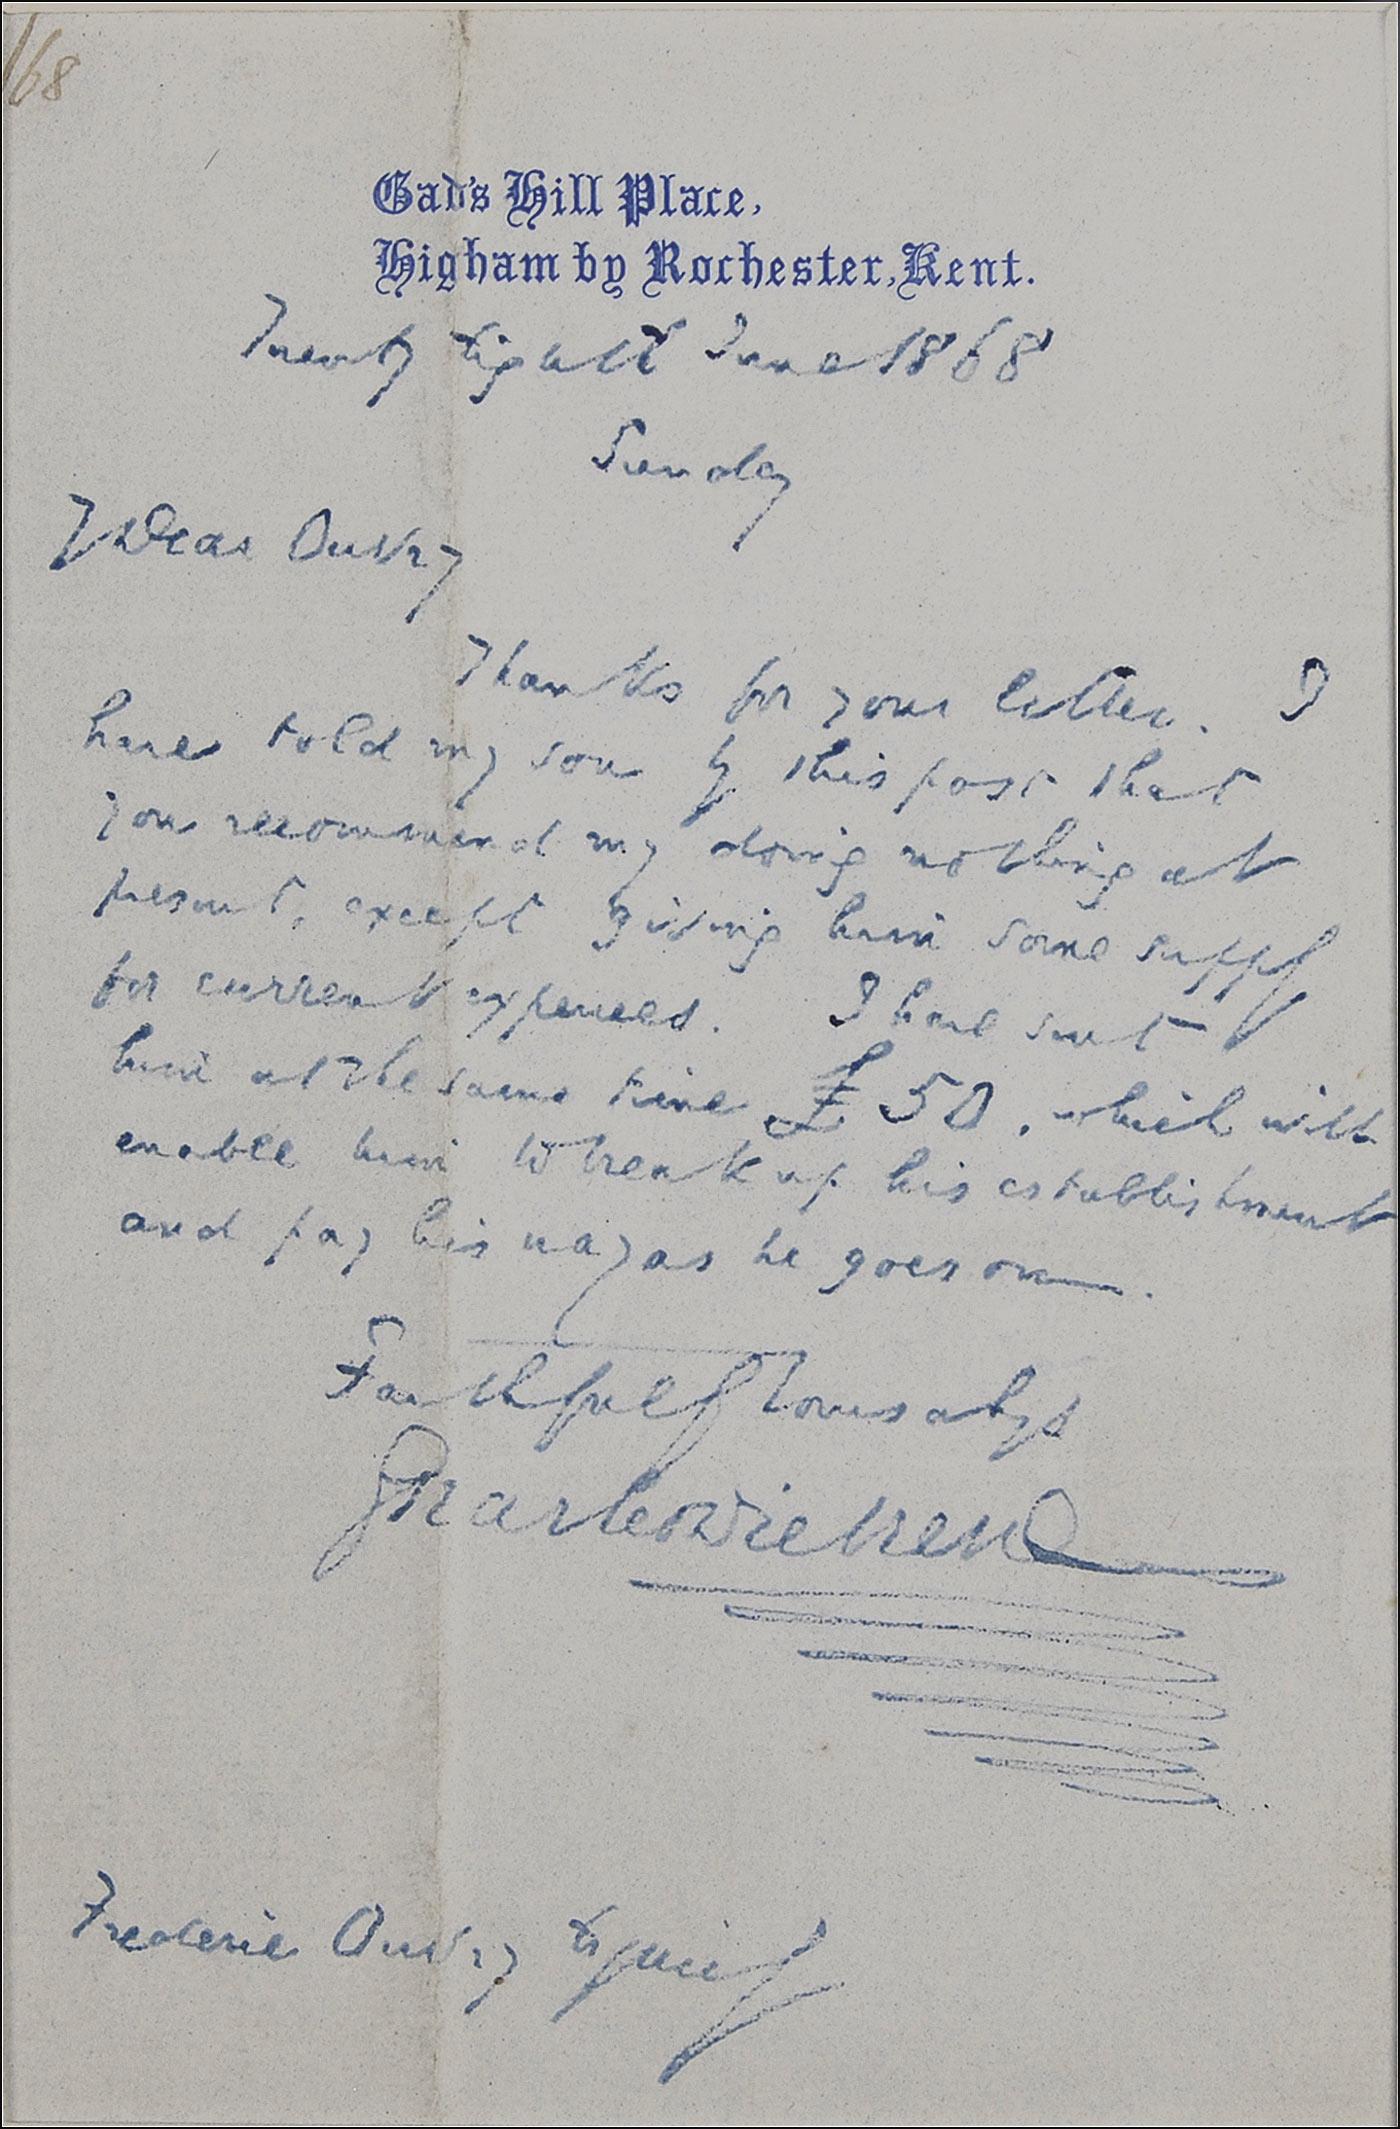 /68
Gad's Hill Place,
Higham by Rochester, Kent.
Twenty Eighth June 1868
Sunday
My Dear Ouvry
Thanks for your letter. I
have told my son by this post that
you recommend my doing nothing at
present, except giving him some supply
for current expences. I have sent
him at the same time £50, which will
enable him to break up his establishment
and pay his way as he goes on.
Faithfully Yours always
Charles Dickens
Frederic Ouvry Esquire